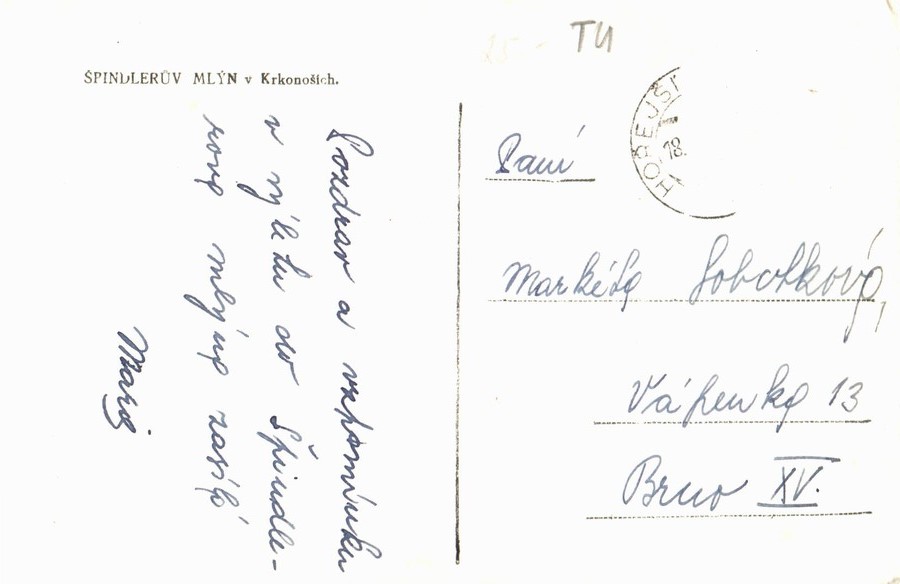 ŠPINDLERŮV MLÝN v Krkonoších.
Pozdrav a vzpomínku
z výletu do Špindle-
rova mlýna zasílá
TU
HOŘEJŠÍ
18.
Paní
Markéta Sobotková,
Vápenka 13
Brno XV.